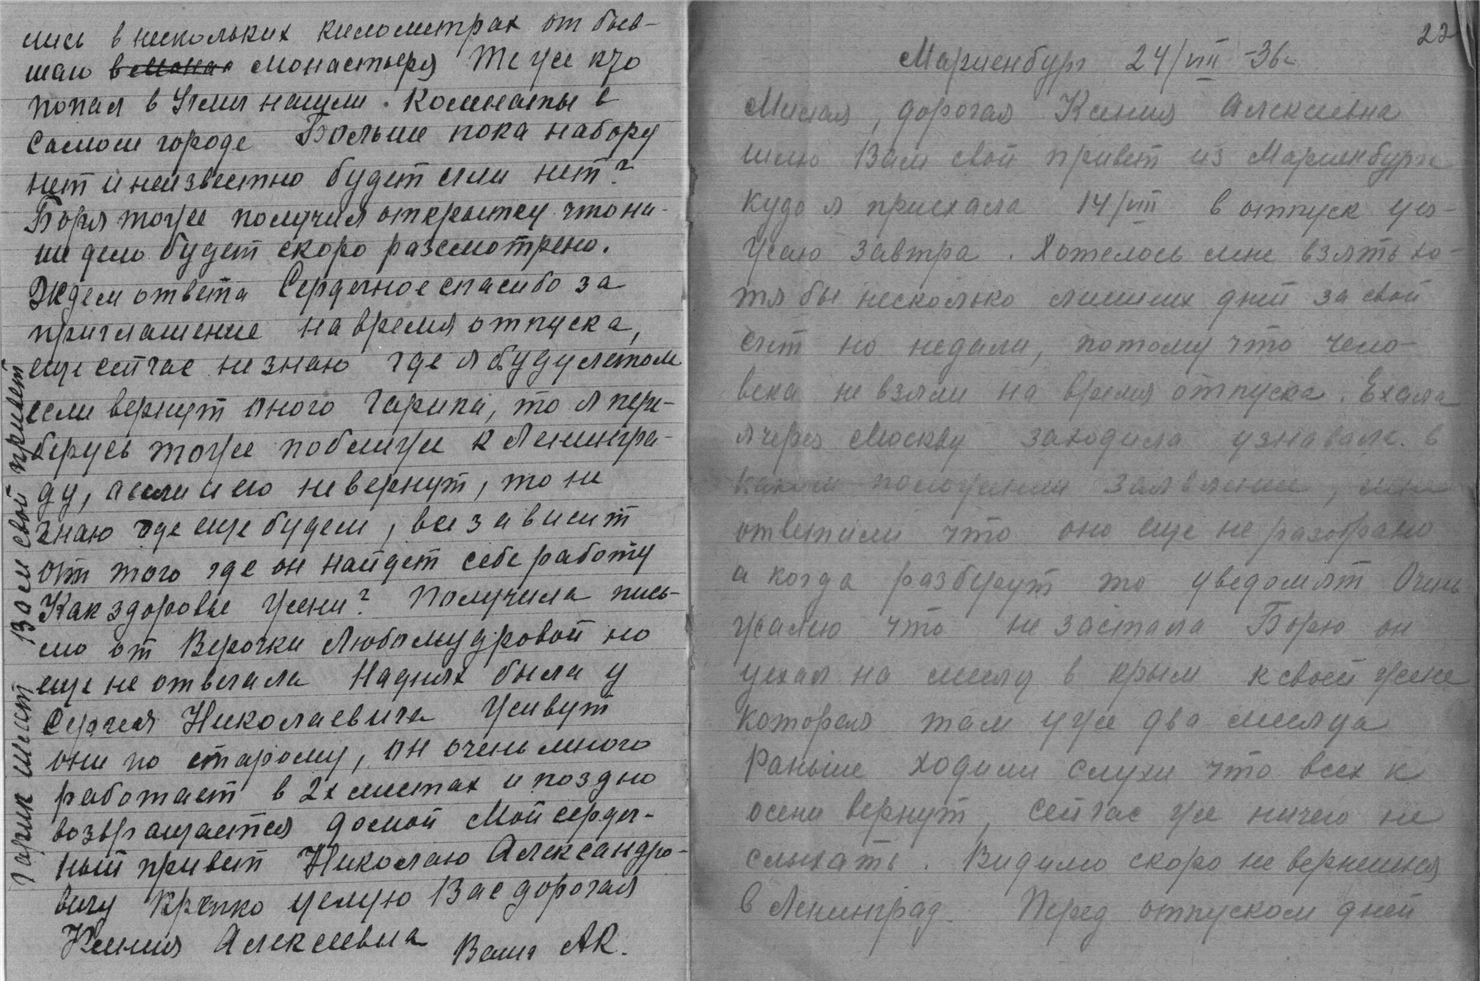 лись в нескольких километрах от быв-
шаго в мона монастыря Те уже кто
попал в Углич нашли комнаты в
самом городе Больше пока набору
нет и неизвестно будет или нет?
Боря тоже получил открытку что на-
ше дело будет скоро разсмотрено.
Ждем ответа Сердечное спасибо за
приглашение на время отпуска,
еще сейчас не знаю где я буду летом
если вернут одного Гарика, то я пере-
берусь тоже поближе к Ленингра-
ду, а если и его не вернут, то не
знаю где еще будем, все зависит
от того где он найдет себе работу
Как здоровье Жени? Получила пись-
мо от Верочки Любомудровой но
еще не отвечала На днях была у
Сергея Николаевича Живут
они по старому, он очень много
работает в 2х местах и поздно
возвращается домой Мой сердеч-
ный привет Николаю Александро-
вичу Крепко целую Вас дорогая
Ксения Алексеевна Ваша АК.
Гарик шлет Вам свой привет
22
Мариенбург 24/VIII -36г
Милая, дорогая Ксения Алексеевна
шлю Вам свой привет из Мариенбурга
куда я приехала 14/VIII в отпуск уез-
жаю завтра. Хотелось мне взять хо-
тя бы несколько лишних дней за свой
счет но не дали, потому что чело-
века не взяли на время отпуска. Ехала
я через Москву заходила узнавала в
каком положении заявление, мне
ответили что оно еще не разобрано
а когда разберут то уведомят Очень
жалею что не застала Борю он
уехал на месяц в Крым к своей жене
которая там уже два месяца
Раньше ходили слухи что всех к
осени вернут, сейчас уже ничего не
слыхать. Видимо скоро не вернемся
в Ленинград. Перед отпуском дней